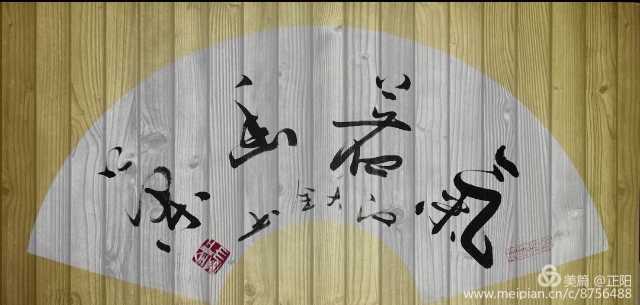 氣若幽蘭
美篇 @正阳
www.meipian.cn/c/8756488